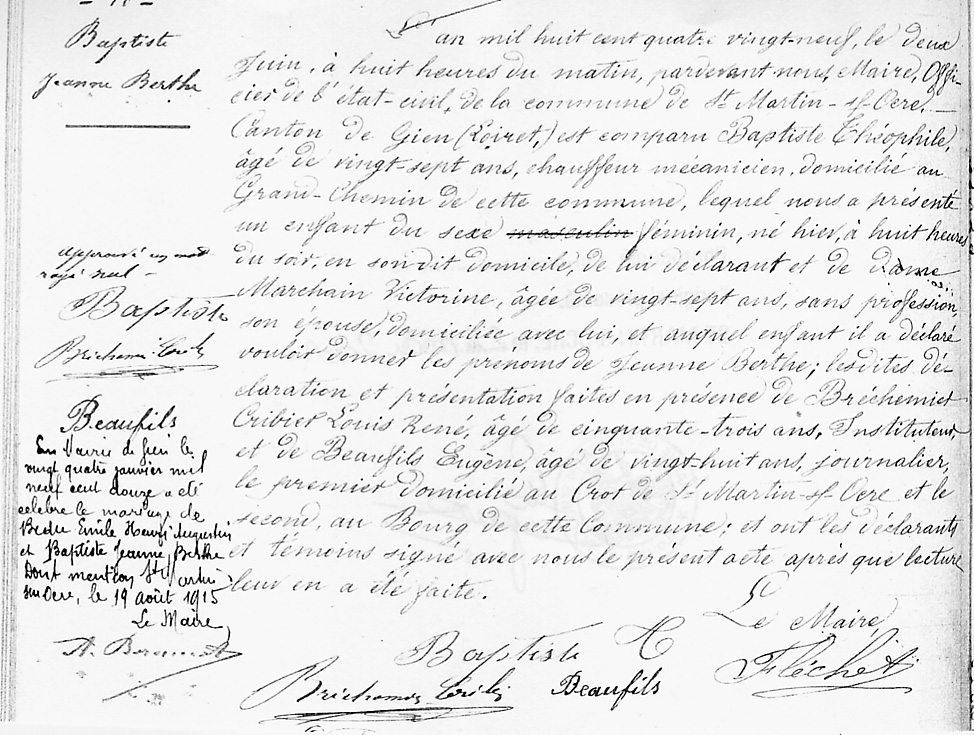 Baptiste
Jeanne Berthe
L'an mil huit cent quatre vingt-neuf, le deux
Juin, à huit heures du matin, pardevant nous, Maire, Offi-
cier de l'état-civil, de la commune de St Martin-sf-Ocre,
Canton de Gien (Loiret,) est comparu Baptiste Théophile,
âgé de vingt-sept ans, chauffeur mécanicien, domicilié au
Grand-Chemin de cette commune, lequel nous a présenté
un enfant du sexe masculin féminin, né hier, à huit heures
du soir, en son dit domicile, de lui déclarant et de dame
Marchain Victorine, âgée de vingt-sept ans, sans profession,
son épouse, domiciliée avec lui, et auquel enfant il a déclaré
vouloir donner les prénoms de Jeanne Berthe; lesdites dé-
claration et présentation faites en présence de Bréchemiet
Cribier Louis René, âgé de cinquante-trois ans, Instituteur,
et de Beaufils Eugène, âgé de vingt-huit ans, journalier,
le premier domicilié au Crot de St Martin-sf-Ocre et le
second, au Bourg de cette Commune; et ont les déclarants
et témoins signé avec nous le présent acte après que lecture
leur en a été faite.
Approuvé un mot
rayé nul -
Baptiste
Beaufils
En Mairie de Gien le
vingt quatre janvier mil
neuf cent douze a été
célébré le mariage de
Bedu Emile Henri Augustin
et Baptiste Jeanne Berthe
Dont mention St Martin
sur Ocre, le 19 août 1915
Le Maire
Le Maire,
Baptiste
Beaufils
Fléchet